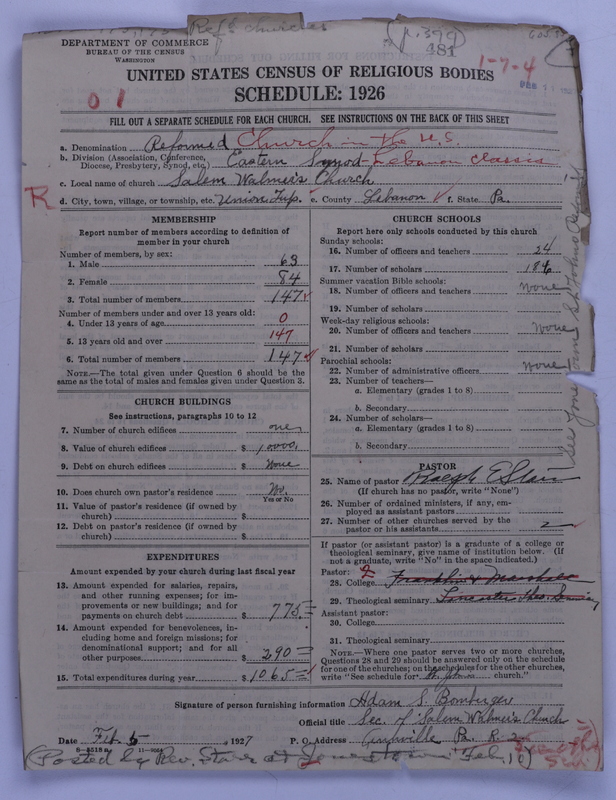 Ref'd churches
(p. 399)
381
1-7-4
DEPARTMENT OF COMMERCE
BUREAU OF THE CENSUS
WASHINGTON
UNITED STATES CENSUS OF RELIGIOUS BODIES
SCHEDULE: 1926
01
FILL OUT A SEPARATE SCHEDULE FOR EACH CHURCH. SEE INSTRUCTIONS ON THE BACK OF THIS SHEET
a. Denomination Reformed Church in the U.S.
b. Division (Association, Conference, Diocese, Presbytery, Synod, etc.) Eastern Synod-Lebanon Classis
c. Local name of church Salem Walmer's Church
R
d. City, town, village, or township, etc. Union Twp. e. County Lebanon f. State Pa.
MEMBERSHIP
Report number of members according to definition of member in your church
Number of members, by sex:
1. Male 63
2. Female 84
3. Total number of members 147
Number of members under and over 13 years old:
4. Under 13 years of age 0
5. 13 years old and over 147
6. Total number of members 147
NOTE.—The total given under Question 6 should be the same as the total of males and females given under Question 3.
CHURCH BUILDINGS
See instructions, paragraphs 10 to 12
7. Number of church edifices one
8. Value of church edifices $ 10000
9. Debt on church edifices $ None
10. Does church own pastor's residence No.
Yes or No
11. Value of pastor's residence (if owned by church) $
12. Debt on pastor's residence (if owned by church) $
EXPENDITURES
Amount expended by your church during last fiscal year
13. Amount expended for salaries, repairs, and other running expenses; for improvements or new buildings; and for payments on church debt $ 775=
14. Amount expended for benevolences, including home and foreign missions; for denominational support; and for all other purposes $ 290=
15. Total expenditures during year $ 1065=
CHURCH SCHOOLS
Report here only schools conducted by this church
Sunday schools:
16. Number of officers and teachers 24
17. Number of scholars 186
Summer vacation Bible schools:
18. Number of officers and teachers None
19. Number of scholars
Week-day religious schools:
20. Number of officers and teachers None
21. Number of scholars
Parochial schools:
22. Number of administrative officers None
23. Number of teachers—
a. Elementary (grades 1 to 8)
b. Secondary
24. Number of scholars—
a. Elementary (grades 1 to 8)
b. Secondary
PASTOR
25. Name of pastor Ralph E Starr
(If church has no pastor, write "None")
26. Number of ordained ministers, if any, employed as assistant pastors
27. Number of other churches served by the pastor or his assistants 2
If pastor (or assistant pastor) is a graduate of a college or theological seminary, give name of institution below. (If not a graduate, write "No" in the space indicated.)
Pastor: 2
28. College Franklin & Marshall
29. Theological seminary Lancaster Theo. Seminary
Assistant pastor:
30. College
31. Theological seminary
NOTE.—Where one pastor serves two or more churches, Questions 28 and 29 should be answered only on the schedule for one of the churches; on the schedules for the other churches, write "See schedule for St. Johns church."
Signature of person furnishing information Adam S. Bomberger
Official title Sec. of Salem Walmer's Church
Date Feb 5, 1927 P. O. Address Annville Pa. R. 2
8—8518 a 11—9084
(Posted by Rev. Starr at Jonestown Feb. 10)